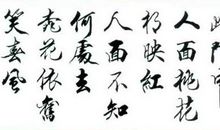 人面桃花
相映紅
人面不知
何處去
桃花依舊
笑春風